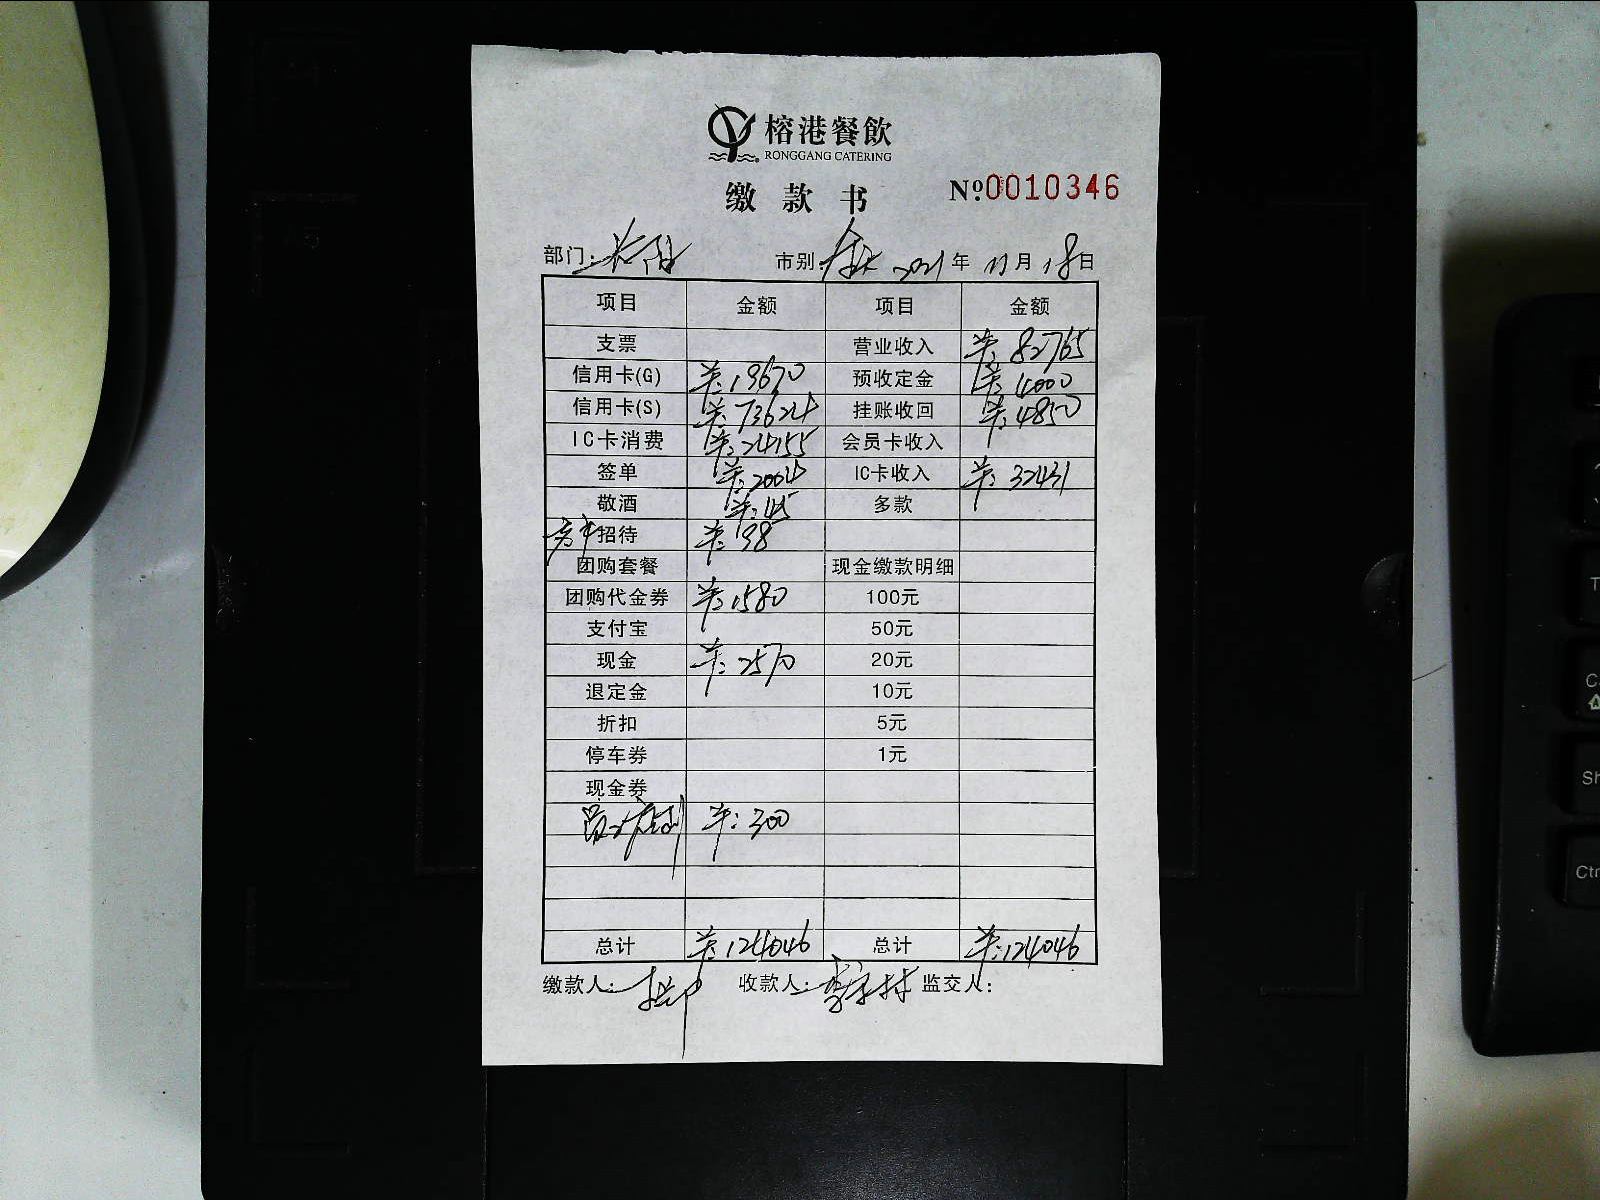 榕港餐飲
RONGGANG CATERING
缴款书 №0010346
部门: 市别: 全天 2021年 11月 18日
项目 金额 项目 金额
支票 营业收入 ¥:82765
信用卡(G) ¥:19670 预收定金 ¥:4000
信用卡(S) ¥:73624 挂账收回 ¥:4850
IC卡消费 ¥:24155 会员卡收入
签单 ¥:2004 IC卡收入 ¥:32431
敬酒 ¥:45 多款
招待 ¥:98
团购套餐 现金缴款明细
团购代金券 ¥:1580 100元
支付宝 50元
现金 ¥:2570 20元
退定金 10元
折扣 5元
停车券 1元
现金券
¥:300
总计 ¥:124046 总计 ¥:124046
缴款人: 收款人: 监交人: